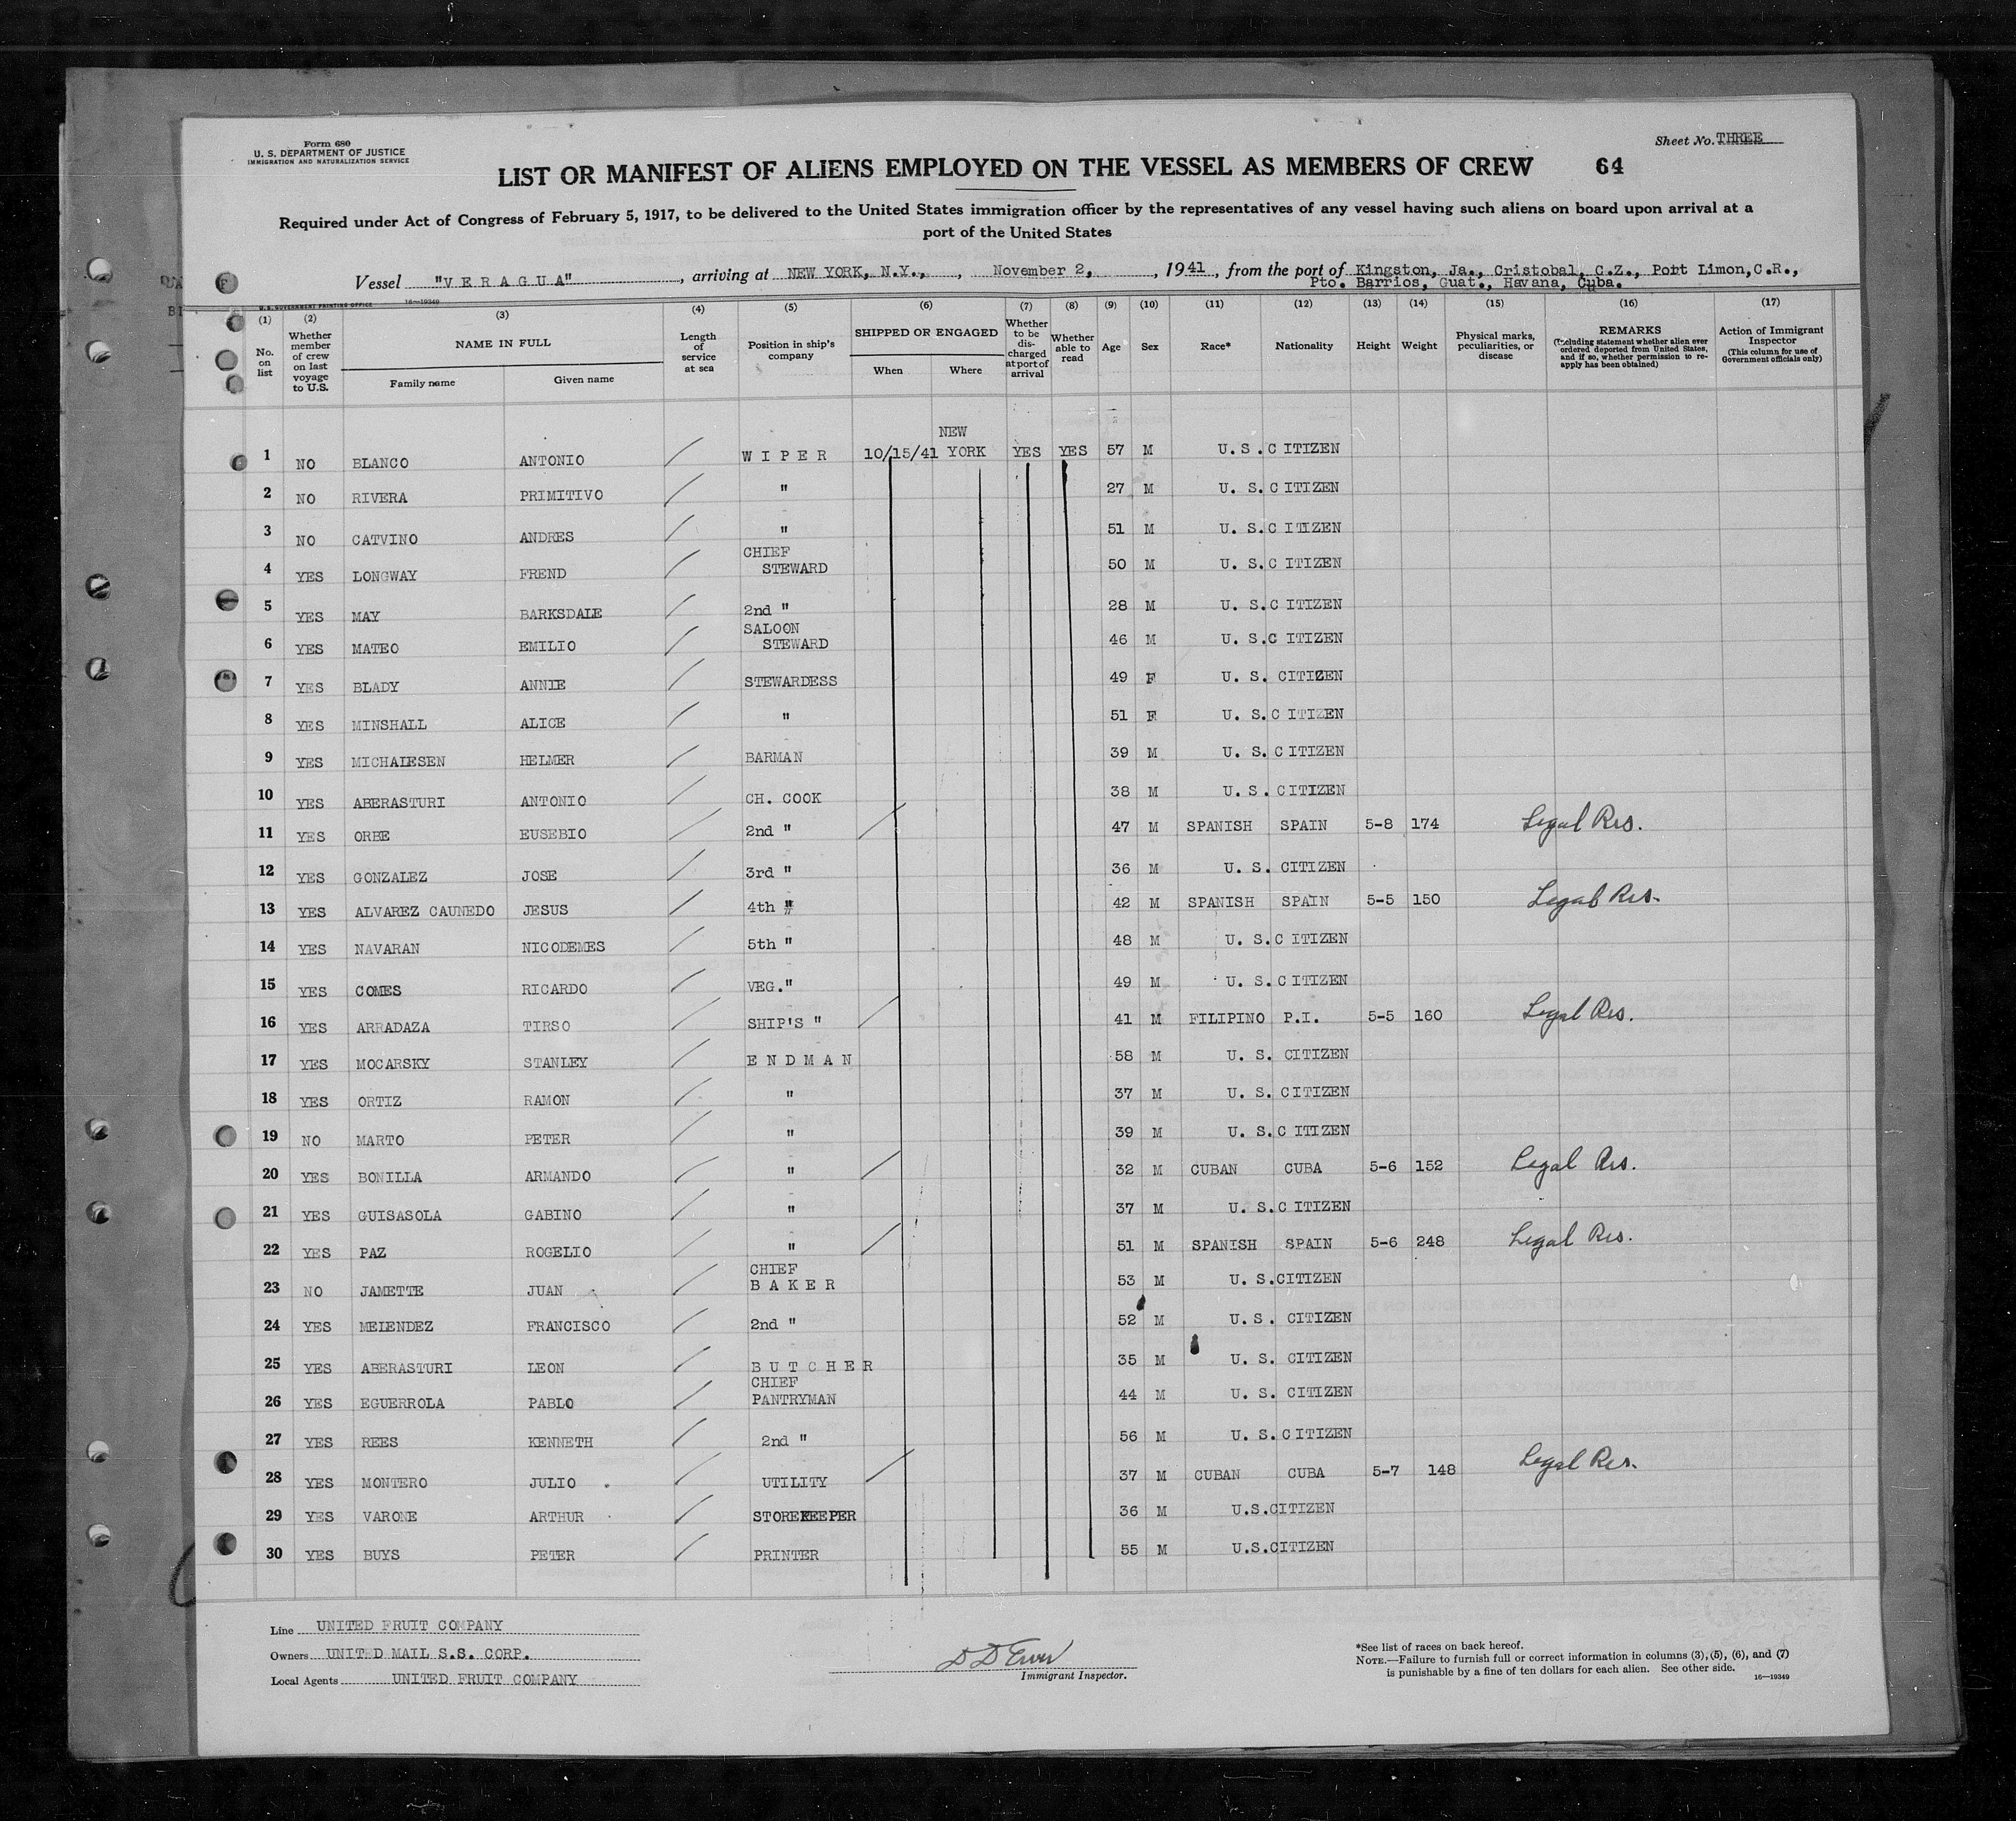 Form 680
U. S. DEPARTMENT OF JUSTICE
IMMIGRATION AND NATURALIZATION SERVICE
Sheet No. THREE
LIST OR MANIFEST OF ALIENS EMPLOYED ON THE VESSEL AS MEMBERS OF CREW 64
Required under Act of Congress of February 5, 1917, to be delivered to the United States immigration officer by the representatives of any vessel having such aliens on board upon arrival at a
port of the United States
Vessel "VERAGUA", arriving at NEW YORK, N.Y., , November 2, , 1941, from the port of Kingston, Ja., Cristobal, C.Z., Port Limon,C.R.,
Pto. Barrios, Guat., Havana, Cuba.
U.S. GOVERNMENT PRINTING OFFICE 16—19349
(1) No. on list
(2) Whether member of crew on last voyage to U.S.
(3) NAME IN FULL Family name Given name
(4) Length of service at sea
(5) Position in ship's company
(6) SHIPPED OR ENGAGED When Where
(7) Whether to be discharged at port of arrival
(8) Whether able to read
(9) Age
(10) Sex
(11) Race*
(12) Nationality
(13) Height
(14) Weight
(15) Physical marks, peculiarities, or disease
(16) REMARKS (Including statement whether alien ever ordered deported from United States, and if so, whether permission to re-apply has been obtained)
(17) Action of Immigrant Inspector (This column for use of Government officials only)
1 NO BLANCO ANTONIO WIPER 10/15/41 NEW YORK YES YES 57 M U.S.CITIZEN
2 NO RIVERA PRIMITIVO " 27 M U. S.CITIZEN
3 NO CATVINO ANDRES " 51 M U. S.CITIZEN
4 YES LONGWAY FREND CHIEF STEWARD 50 M U. S.CITIZEN
5 YES MAY BARKSDALE 2nd " 28 M U. S.CITIZEN
6 YES MATEO EMILIO SALOON STEWARD 46 M U. S.CITIZEN
7 YES BLADY ANNIE STEWARDESS 49 F U. S. CITIZEN
8 YES MINSHALL ALICE " 51 F U. S.CITIZEN
9 YES MICHAIESEN HELMER BARMAN 39 M U. S.CITIZEN
10 YES ABERASTURI ANTONIO CH. COOK 38 M U.S.CITIZEN
11 YES ORBE EUSEBIO 2nd " 47 M SPANISH SPAIN 5-8 174 Legal Res.
12 YES GONZALEZ JOSE 3rd " 36 M U. S. CITIZEN
13 YES ALVAREZ CAUNEDO JESUS 4th " 42 M SPANISH SPAIN 5-5 150 Legal Res.
14 YES NAVARAN NICODEMES 5th " 48 M U. S.CITIZEN
15 YES COMES RICARDO VEG." 49 M U. S.CITIZEN
16 YES ARRADAZA TIRSO SHIP'S " 41 M FILIPINO P.I. 5-5 160 Legal Res.
17 YES MOCARSKY STANLEY ENDMAN 58 M U. S. CITIZEN
18 YES ORTIZ RAMON " 37 M U. S. CITIZEN
19 NO MARTO PETER " 39 M U. S.CITIZEN
20 YES BONILLA ARMANDO " 32 M CUBAN CUBA 5-6 152 Legal Res.
21 YES GUISASOLA GABINO " 37 M U. S.CITIZEN
22 YES PAZ ROGELIO " 51 M SPANISH SPAIN 5-6 248 Legal Res.
23 NO JAMETTE JUAN CHIEF BAKER 53 M U. S.CITIZEN
24 YES MEIENDEZ FRANCISCO 2nd " 52 M U.S. CITIZEN
25 YES ABERASTURI LEON BUTCHER 35 M U. S. CITIZEN
26 YES EGUERROLA PABLO CHIEF PANTRYMAN 44 M U. S. CITIZEN
27 YES REES KENNETH 2nd " 56 M U. S.CITIZEN
28 YES MONTERO JULIO UTILITY 37 M CUBAN CUBA 5-7 148 Legal Res.
29 YES VARONE ARTHUR STOREKEEPER 36 M U.S.CITIZEN
30 YES BUYS PETER PRINTER 55 M U.S.CITIZEN
Line UNITED FRUIT COMPANY
Owners UNITED MAIL S.S. CORP.
Local Agents UNITED FRUIT COMPANY
Immigrant Inspector.
*See list of races on back hereof.
NOTE.—Failure to furnish full or correct information in columns (3), (5), (6), and (7)
is punishable by a fine of ten dollars for each alien. See other side.
16—19349